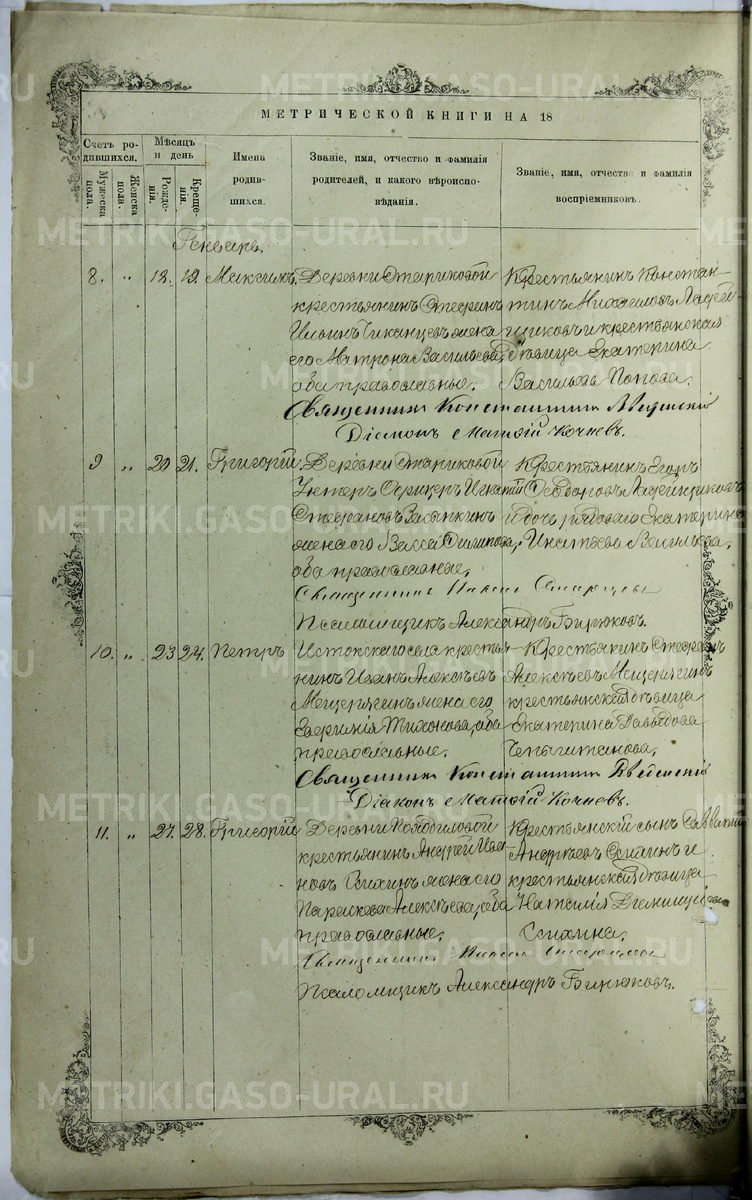 МЕТРИЧЕСКОЙ КНИГИ НА 18
Счетъ родившихся.
Мужеска пола.
Женска пола.
Мѣсяцъ и день
Рожденія.
Крещенія.
Имена родившихся.
Званіе, имя, отчество и фамилія родителей, и какого вѣроисповѣданія.
Званіе, имя, отчество и фамилія воспріемниковъ.
Генварь.
8. „ 18. 19. Максимъ.
Деревни Стариковой
крестьянинъ Стефанъ
Ильинъ жена
его Матрона Васильева,
оба православные.
Крестьянинъ Констан-
тинъ Михаиловъ Ладей-
щиковъ и крестьянская
дѣвица Екатерина
Васильева Попова.
Священникъ Константинъ Введенскій
Діаконъ Матѳій Кочневъ.
9 „ 20 21. Григорій.
Деревни Стариковой
Унтеръ Офицеръ Игнатій
Стефановъ
жена его Васса Филипова,
оба православные.
Крестьянинъ Егоръ
Ладейщиковъ
и дочь рядоваго Екатерина
Игнатьева Васильева.
Священникъ Павелъ
Псаломщикъ Александръ Бирюковъ.
10. „ 23 24. Петръ
Истокскаго села крестья-
нинъ Иванъ Алексѣевъ
Мещерягинъ жена его
Евфимія Тихонова, оба
православные.
Крестьянинъ Стефанъ
Алексѣевъ Мещерягинъ
крестьянская дѣвица
Екатерина Давыдова
Священникъ Константинъ Введенскій
Діаконъ Матѳій Кочневъ.
11. „ 27. 28. Григорій
Деревни
крестьянинъ Андрей Ива-
новъ жена его
Параскева Алексѣева, оба
православные.
Крестьянскій сынъ
Андреевъ и
крестьянская дѣвица
Наталія
Священникъ Павелъ
Псаломщикъ Александръ Бирюковъ.
METRIKI.GASO-URAL.RU